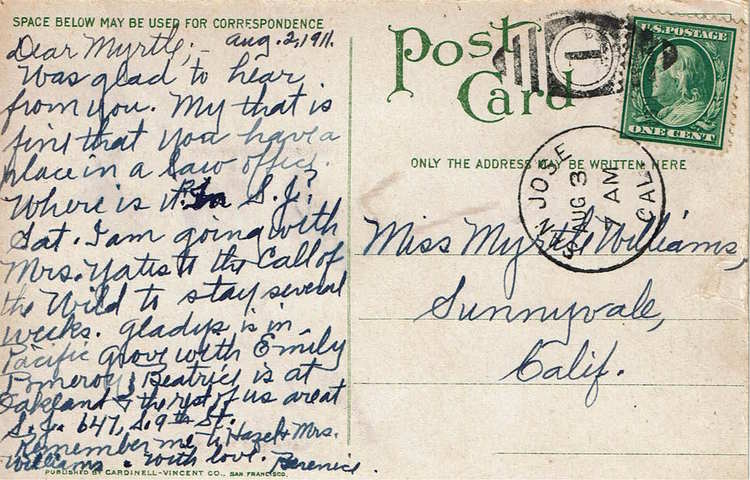 SPACE BELOW MAY BE USED FOR CORRESPONDENCE
Dear Myrtle, - Aug. 2, 1911.
Was glad to hear
from you. My that is
fine that you have a
place in a law office.
Where is it? In S.J?
Sat. I am going with
Mrs. Yates to the Call of
the Wild to stay several
weeks. Gladys is in
Pacific Grove with Emily
Pomeroy, Beatrice is at
Oakland & the rest of us are at
S.J. 647, S. 9th St.
Remember me to Hazel & Mrs.
Williams. With love. Berenice.
PUBLISHED BY CARDINELL-VINCENT CO., SAN FRANCISCO.
Post
Card
1
U.S. POSTAGE
ONE CENT
ONLY THE ADDRESS MAY BE WRITTEN HERE
SAN JOSE
CAL.
AUG 3
7 AM
Miss Myrtle Williams,
Sunnyvale,
Calif.